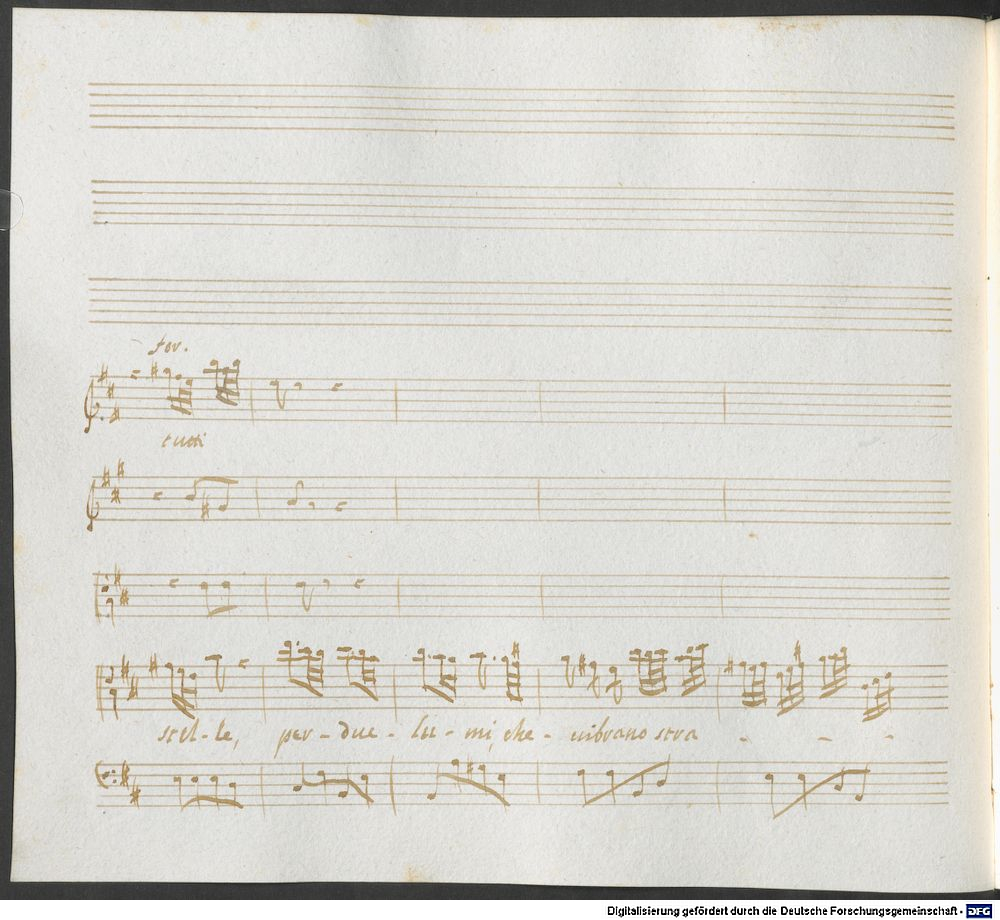 for.
tutti
stel-le, per-due-lu-mi, che-vibrano stra - - -
Digitalisierung gefördert durch die Deutsche Forschungsgemeinschaft - DFG